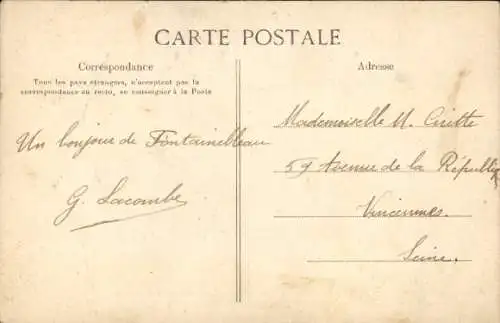 CARTE POSTALE
Correspondance
Tous les pays étrangers, n'acceptent pas la
correspondance au recto, se renseigner à la Poste
Un bonjour de Fontainebleau
G. Lacombe
Adresse
Mademoiselle M.
59 Avenue de la République
Vincennes.
Seine.